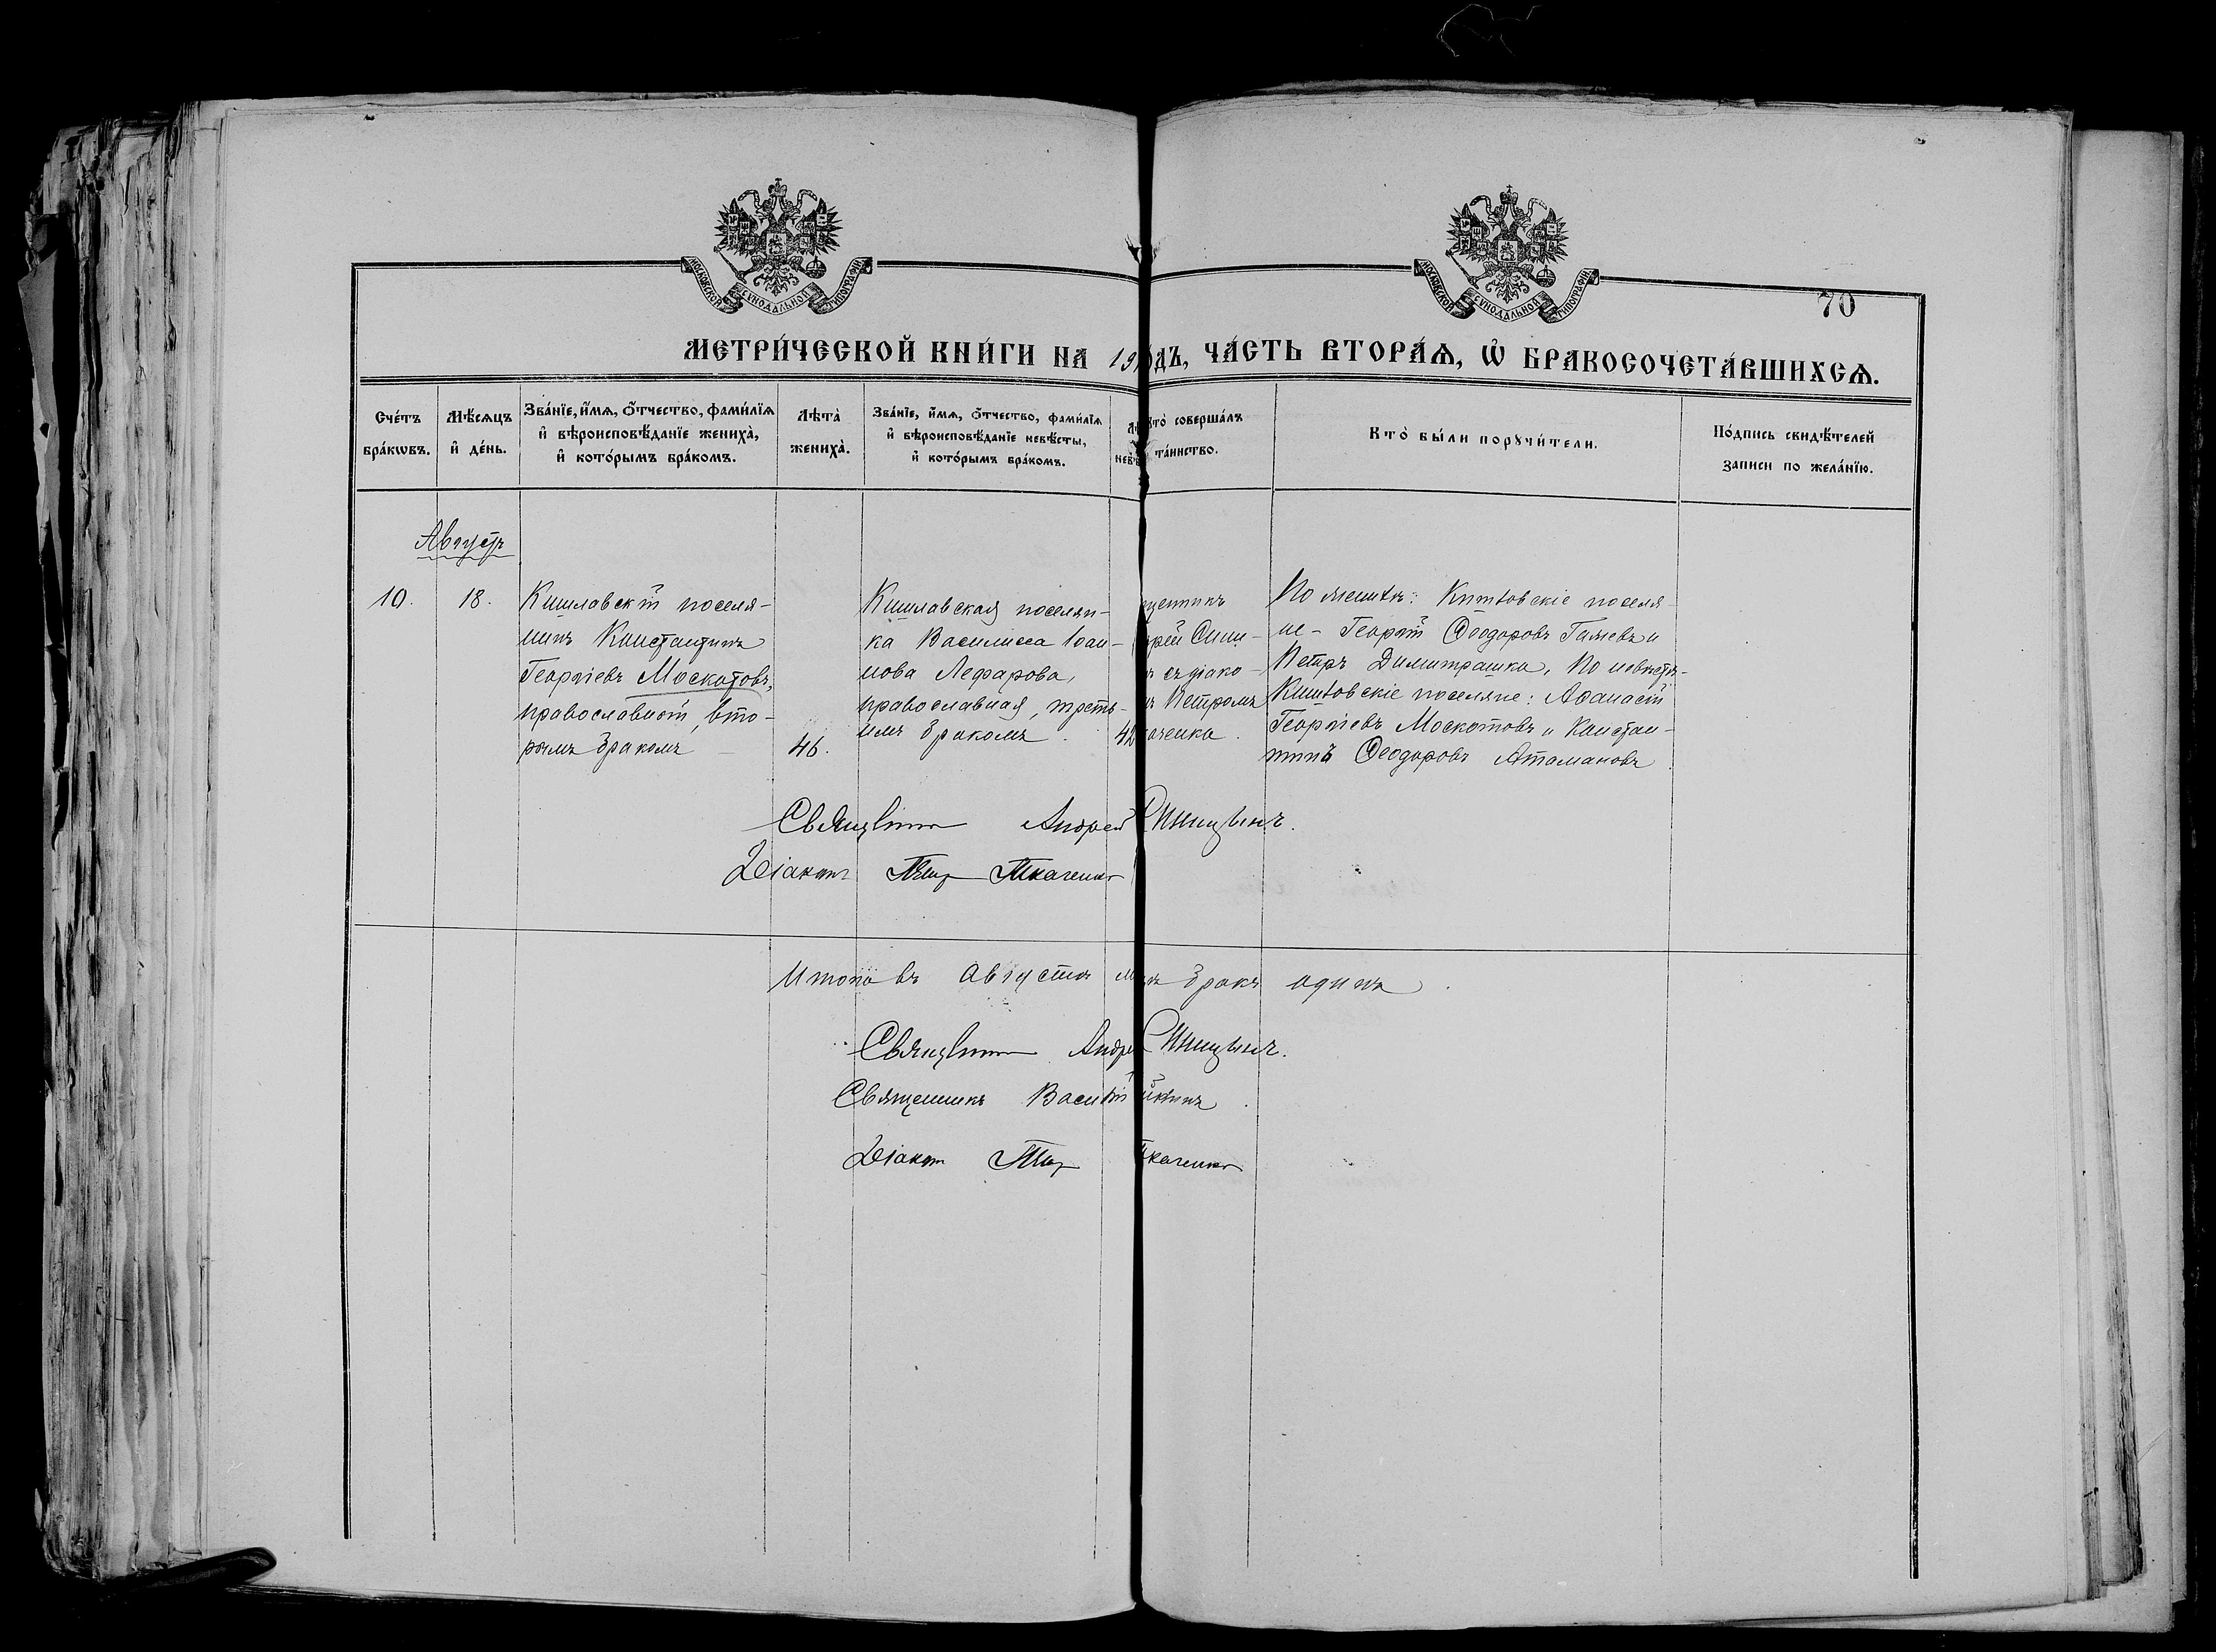 МОСКОВСКОЙ СУНОДАЛЬНОЙ ТИПОГРАФІИ
МОСКОВСКОЙ СУНОДАЛЬНОЙ ТИПОГРАФІИ
70
МЕТРИ́ЧЕСКОЙ КНИ́ГИ НА 19 ДЪ, ЧА́СТЬ ВТОРА́Ѧ, Ѿ БРАКОСОЧЕТА́ВШИХСѦ.
Сче́тъ
бра́кѡвъ.
Мѣ́сѧцъ
и҆ де́нь.
Зва́нїе, и҆́мѧ, ѻ҆́тчество, фами́лїѧ
и҆ вѣроисповѣ́данїе жениха̀,
и҆ кото́рымъ бра́комъ.
Лѣта̀
жениха̀.
Зва́нїе, и҆́мѧ, ѻ҆́тчество, фами́лїѧ
и҆ вѣроисповѣ́данїе невѣ́сты,
и҆ кото́рымъ бра́комъ.
Кто̀ соверша́лъ
та́инство.
Кто̀ бы́ли порꙋчи́тели.
По́дпись свидѣ́телей
записи по жела́нїю.
Августъ
10.
18.
Кишлавскій поселя-
нинъ Константинъ
Георгіевъ Москотовъ,
православный, вто-
рымъ бракомъ
46.
Кишлавская поселян-
ка Василисса Іоан-
нова Лефарова,
православная, треть-
имъ бракомъ.
42
щенникъ
дрей Сини-
съ діако-
Петромъ
каченко.
По женихѣ: Кишлавскіе поселя-
не - Георгій Ѳеодоровъ и
Петръ Димитрашка, По невѣстѣ-
Кишлавскіе поселяне: Аѳанасій
Георгіевъ Москотовъ и Констан-
тинъ Ѳеодоровъ Атамановъ
Священникъ Андрей Синицынъ.
Діаконъ Петръ Ткаченко
Итого въ августѣ м бракъ одинъ.
Священникъ Андре Синицынъ.
Священникъ Василій
Діаконъ Петръ Ткаченко